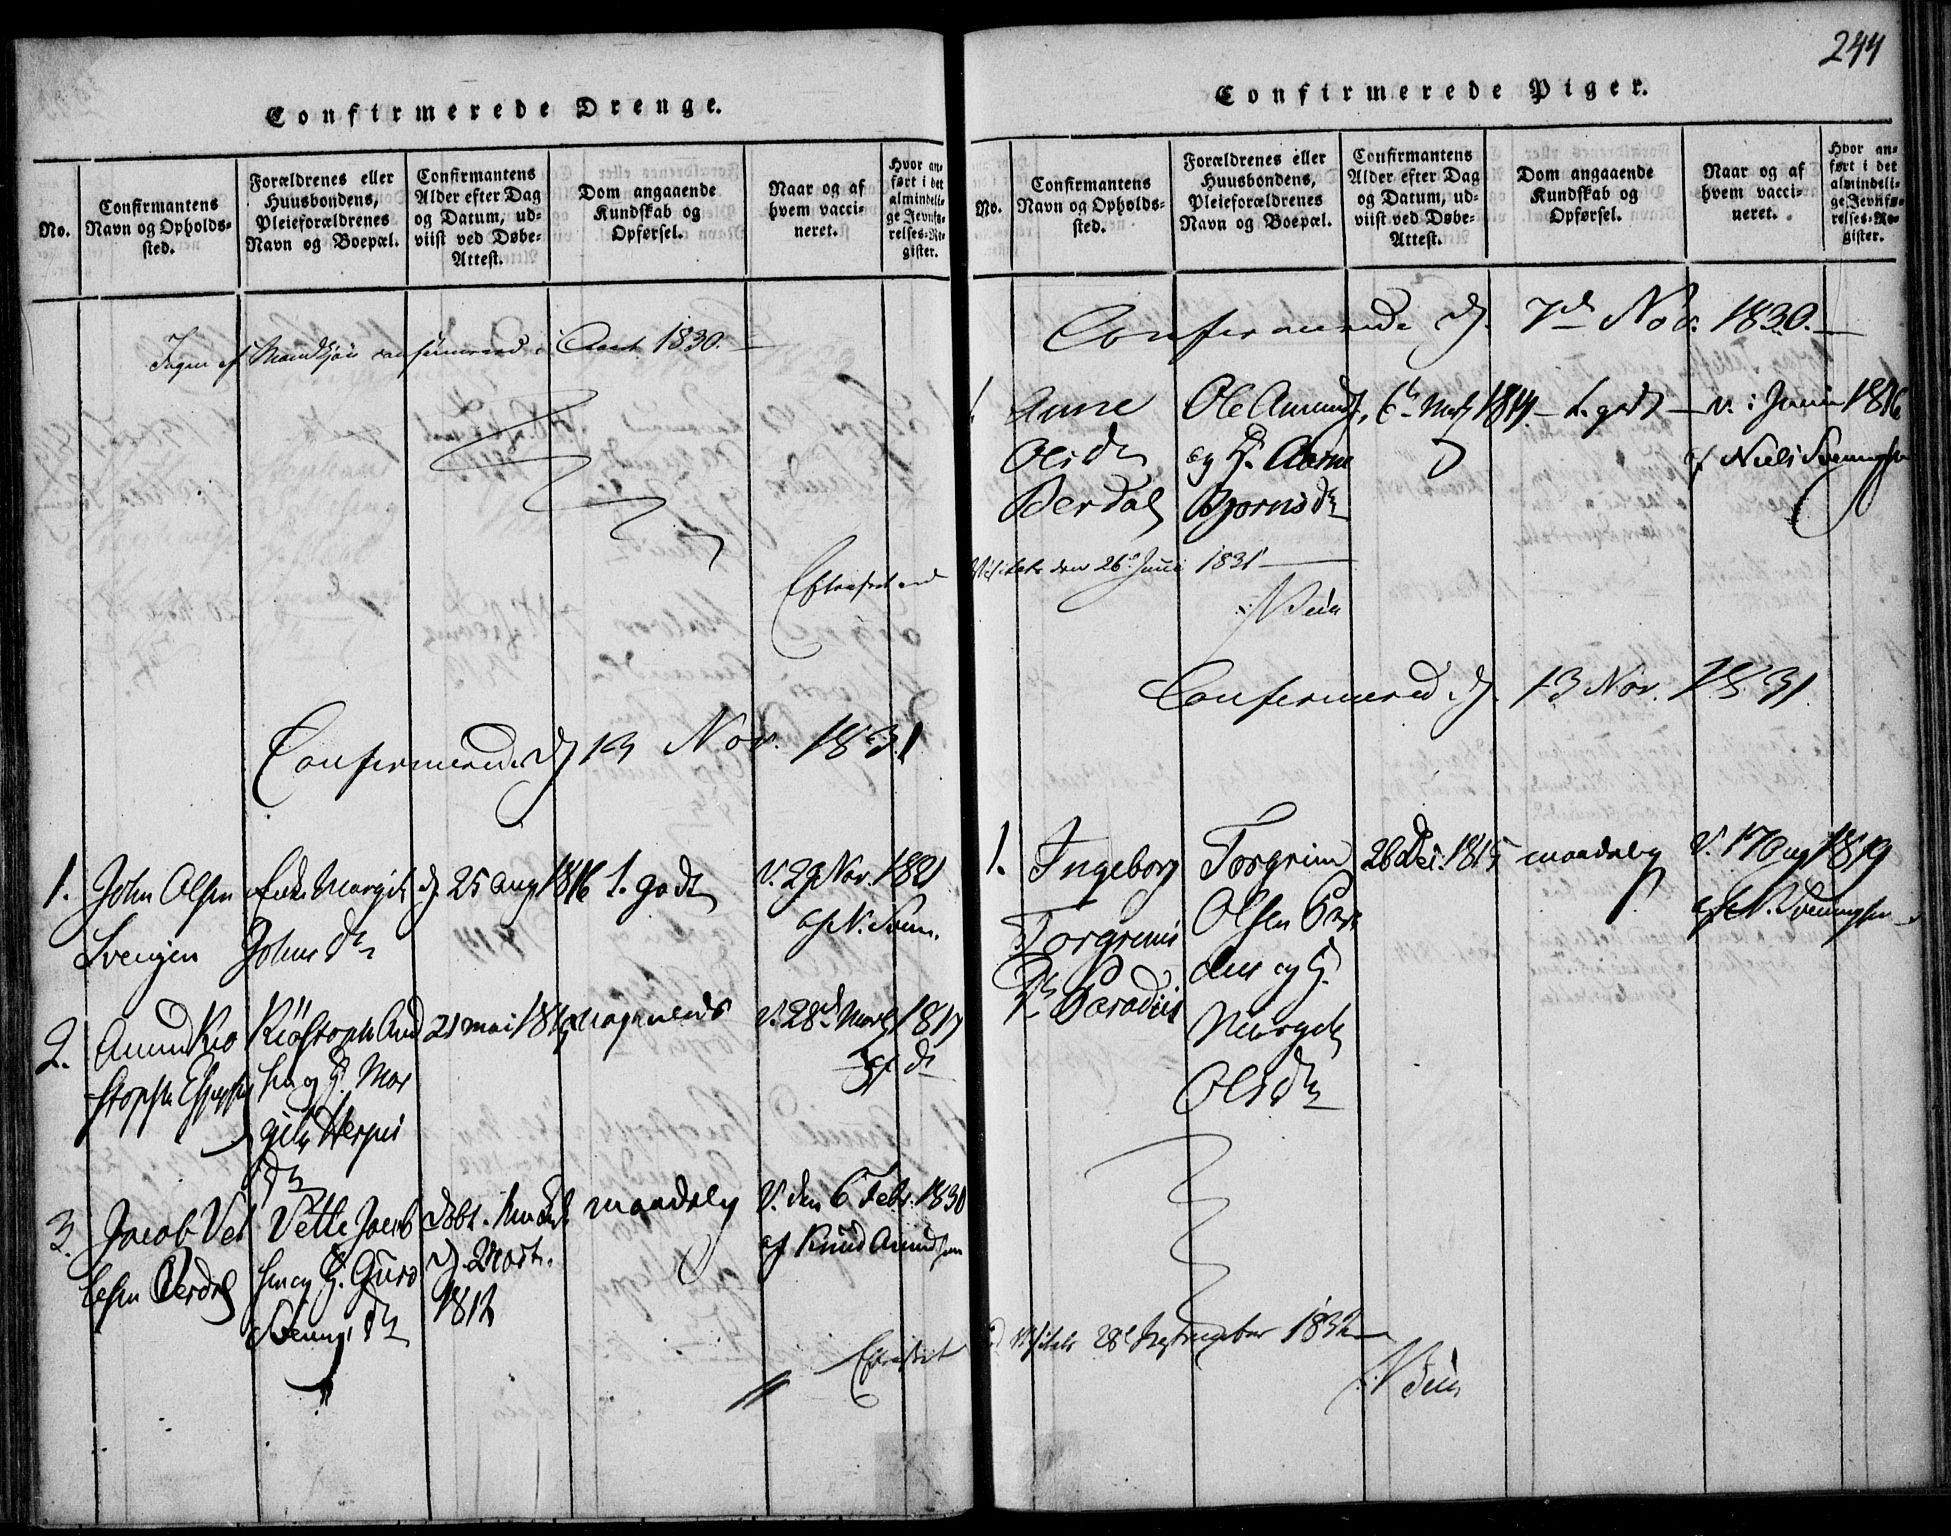 Confirmerede Drenge.
No.
Confirmantens
Navn og Opholds-
sted.
Forældrenes eller
Huusbondens,
Pleieforældrenes
Navn og Boepæl.
Confirmantens
Alder efter Dag
og Datum, ud-
viist ved Døbe-
Attest.
Dom angaaende
Kundskab og
Opførsel.
Naar og af
hvem vacci-
neret.
Hvor an-
ført i det
almindeli-
ge Jevnfø-
relses-Re-
gister.
Ingen af Mandkjøn confirmered i Aaret 1830.
Confirmerede d 13 Nov. 1831
1.
John Olsen
Svenjen
Enke Margit
Johns Dr
d 25 Aug 1816
1. godt
V. 29 Nov. 1821
af N. Sven.
2.
Amund Kio
stophs
Kiøstoph Amd
sen og H. Mar
githe
Dr
21 mai 1816
V. 28de Marts 1817
af do
3.
Jacob Vet
lesen Berdal
Vetle Jacob
sen og H. Guro
Svenungs Dr
Døbt.
d. Mart.
1812
maadelig
V. den 6 Febr. 1830
af Knud Amundsen
Efterseet
244
Confirmerede Piger.
No.
Confirmantens
Navn og Opholds-
sted.
Forældrenes eller
Huusbondens,
Pleieforældrenes
Navn og Boepæl.
Confirmantens
Alder efter Dag
og Datum, ud-
viist ved Døbe-
Attest.
Dom angaaende
Kundskab og
Opførsel.
Naar og af
hvem vacci-
neret.
Hvor an-
ført i det
almindeli-
ge Jevnfø-
relses-Re-
gister.
Confirmerede d. 7de Nov. 1830.
1.
Anne
Ols Dr
Berdal
Ole Amunds.
og H. Aasne
Bjørns Dr
6te Marts 1814
1. godt
v. i Junii 1816
af Niels Svenungsen
Efterseet ved Visitats den 26de Junii 1831
Confirmered d. 13 Nov. 1831.
1.
Ingeborg
Torgrims
Dr Paradiis
Torgrim
Olsen Para
diis og H.
Margit
Ols Dr
26 Dec. 1815
maadelig
V. 17 Aug 1819
af N. Svenungsen
Visitats 28de September 1832